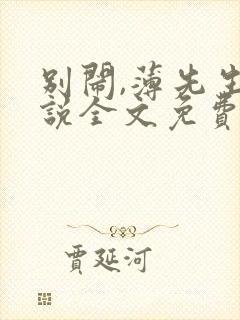 别鬧,薄先生
說全文免費
賈延河